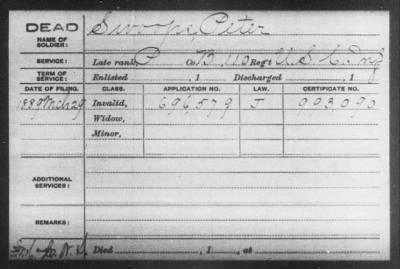 DEAD
NAME OF SOLDIER: Swoope, Peter
SERVICE: Late rank, P Co. B, 110 Reg't U.S.C. Inf
TERM OF SERVICE: Enlisted , 1 Discharged , 1
DATE OF FILING. CLASS. APPLICATION NO. LAW. CERTIFICATE NO.
1889 Mch 29 Invalid, 696,579 J 993,090
Widow,
Minor,
ADDITIONAL SERVICES:
REMARKS:
Died , 1 , at